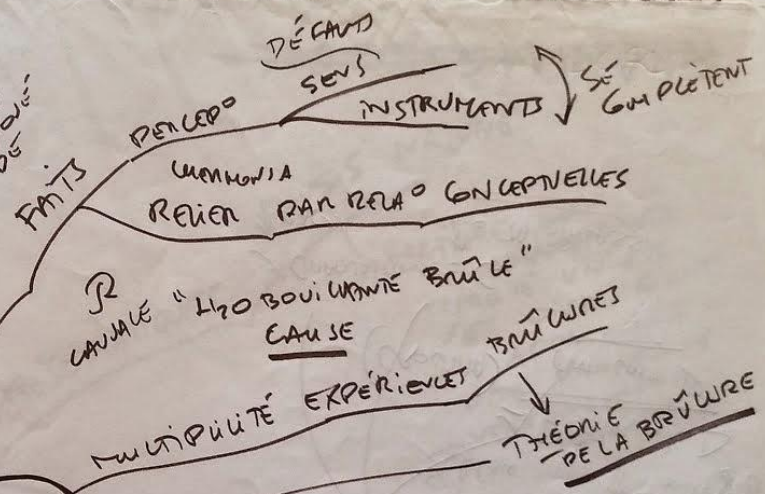 DÉFAUTS
SENS
PERCEP°
INSTRUMENTS
SE COMPLÈTENT
FAITS
RELIER PAR RELA° CONCEPTUELLES
R
CAUSALE "H2O BOUILLANTE BRÛLE"
CAUSE
MULTIPLICITÉ EXPÉRIENCES BRÛLURES
THÉORIE
DE LA BRÛLURE